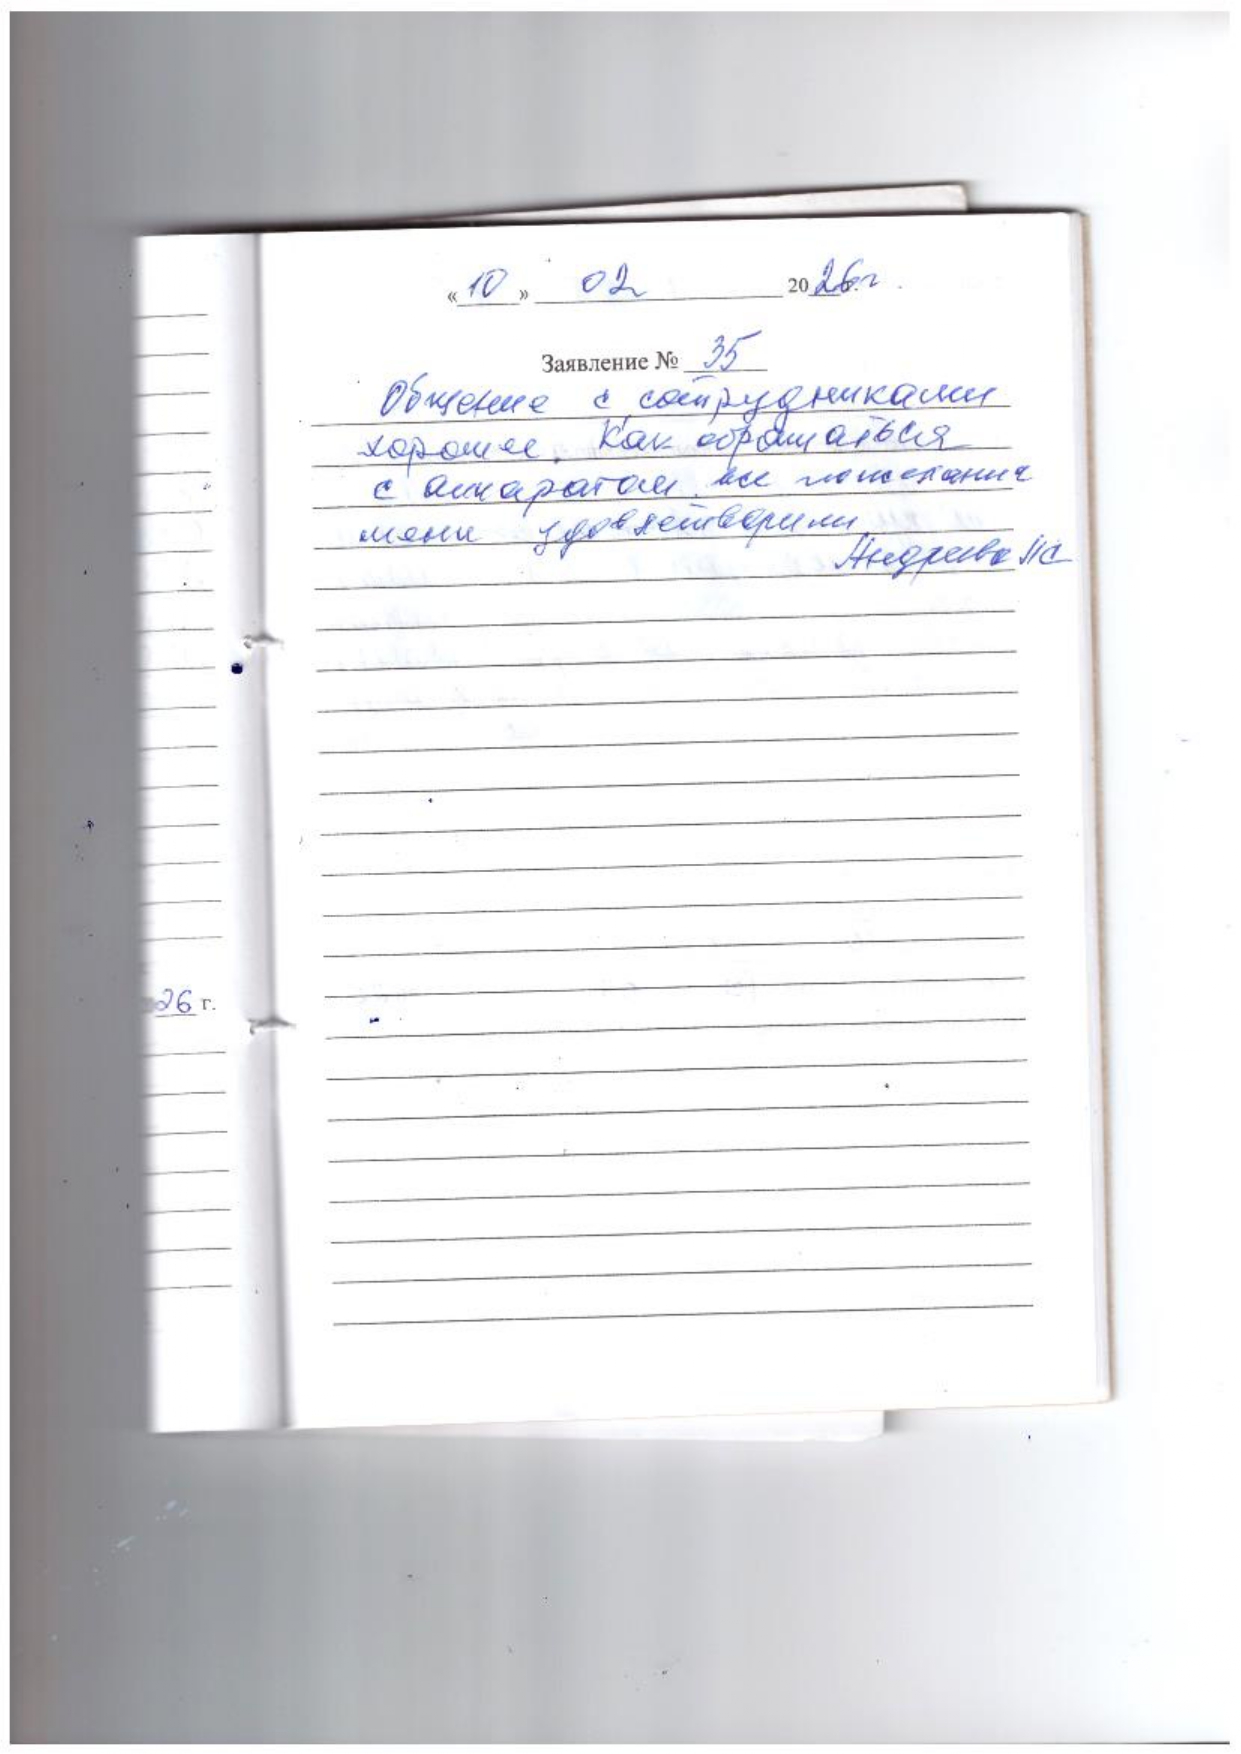 « 10 » 02 2026г.
Заявление № 35
Общение с сотрудниками
хорошее. Как обращаться
с аппаратом все пожелания
мени удовлетворили
Андреева НС
26 г.